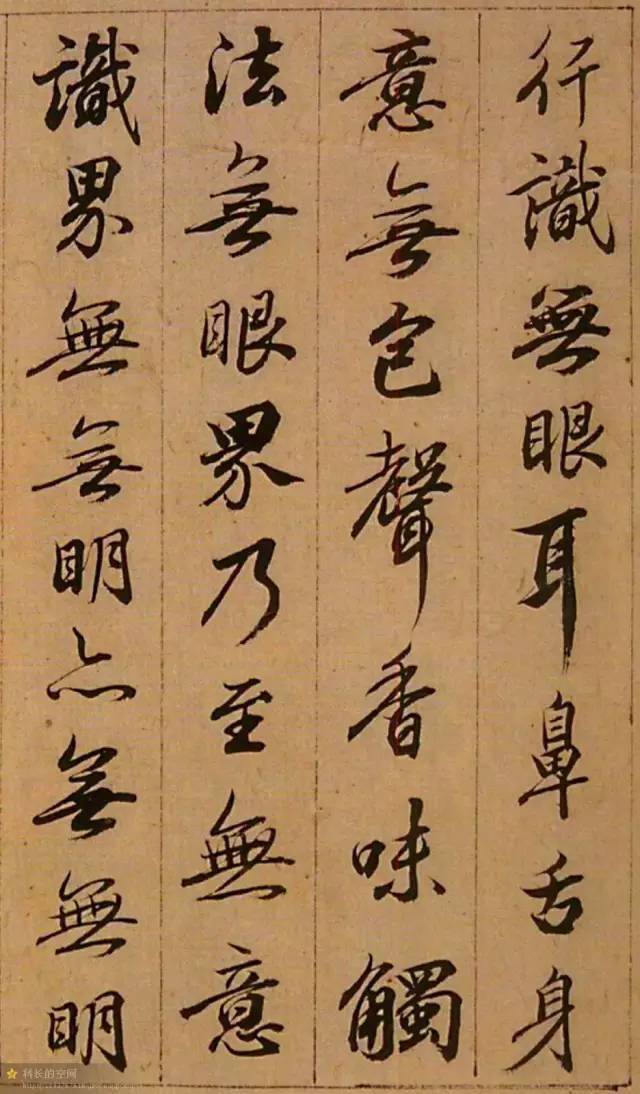 行識無眼耳鼻舌身
意無色聲香味觸
法無眼界乃至無意
識界無無明亦無無明
科长的空网